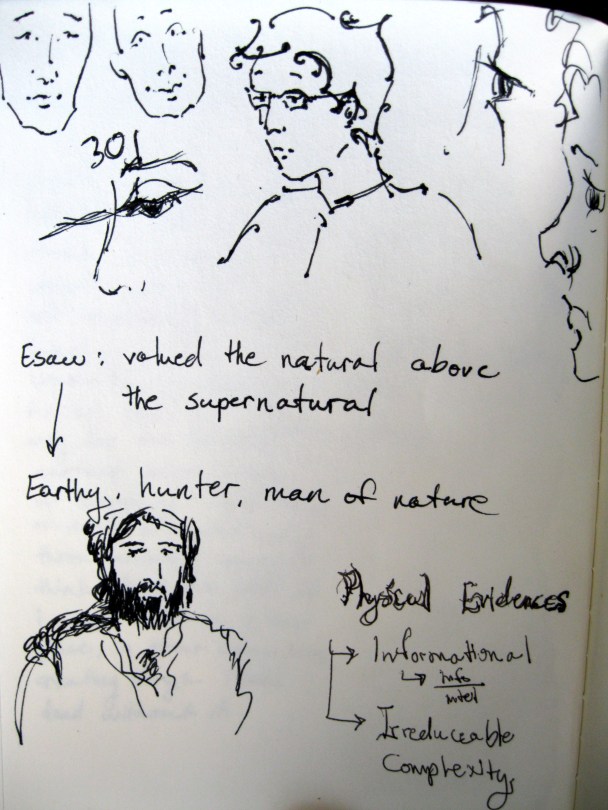 30
Esau: valued the natural above
the supernatural
Earthy, hunter, man of nature
Physical Evidences
Informational
info
intel
Irreduceable
Complexity,